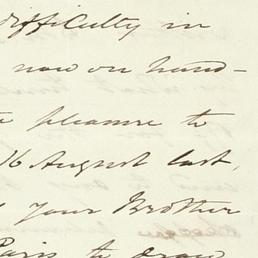 difficulty in
now on hand-
pleasure to
16 August last,
your Brother
Paris to draw